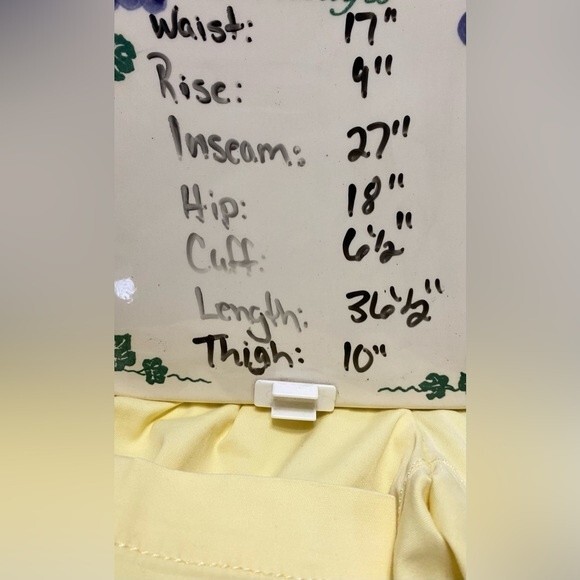 Waist: 17"
Rise: 9"
Inseam: 27"
Hip: 18"
Cuff: 6½"
Length: 36½"
Thigh: 10"